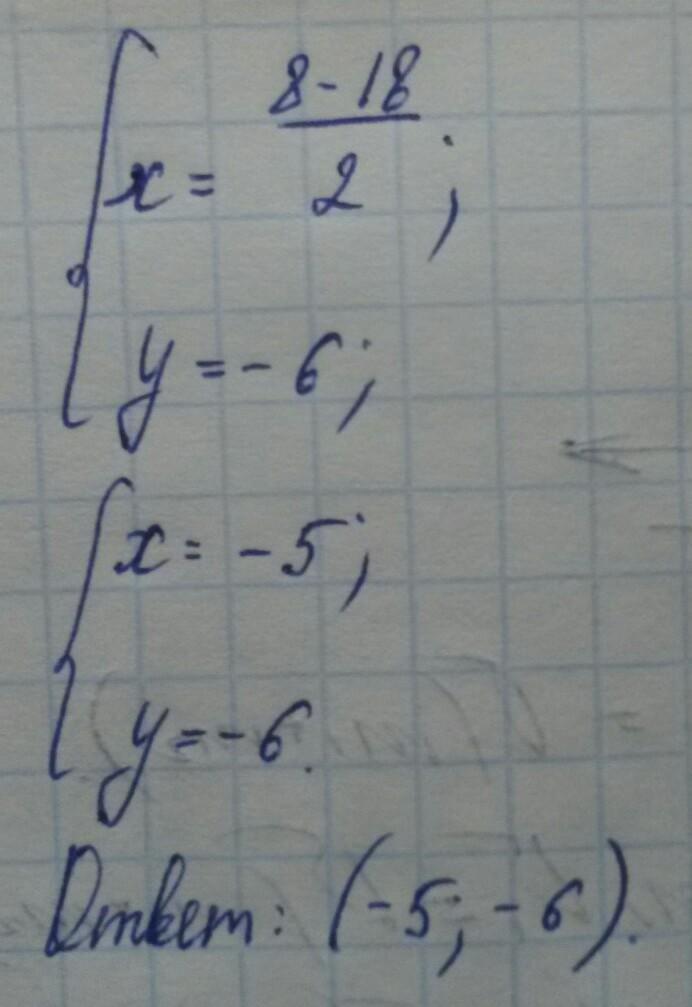 x = (8-18)/2;
y = -6;
x = -5;
y = -6.
Ответ: (-5; -6).